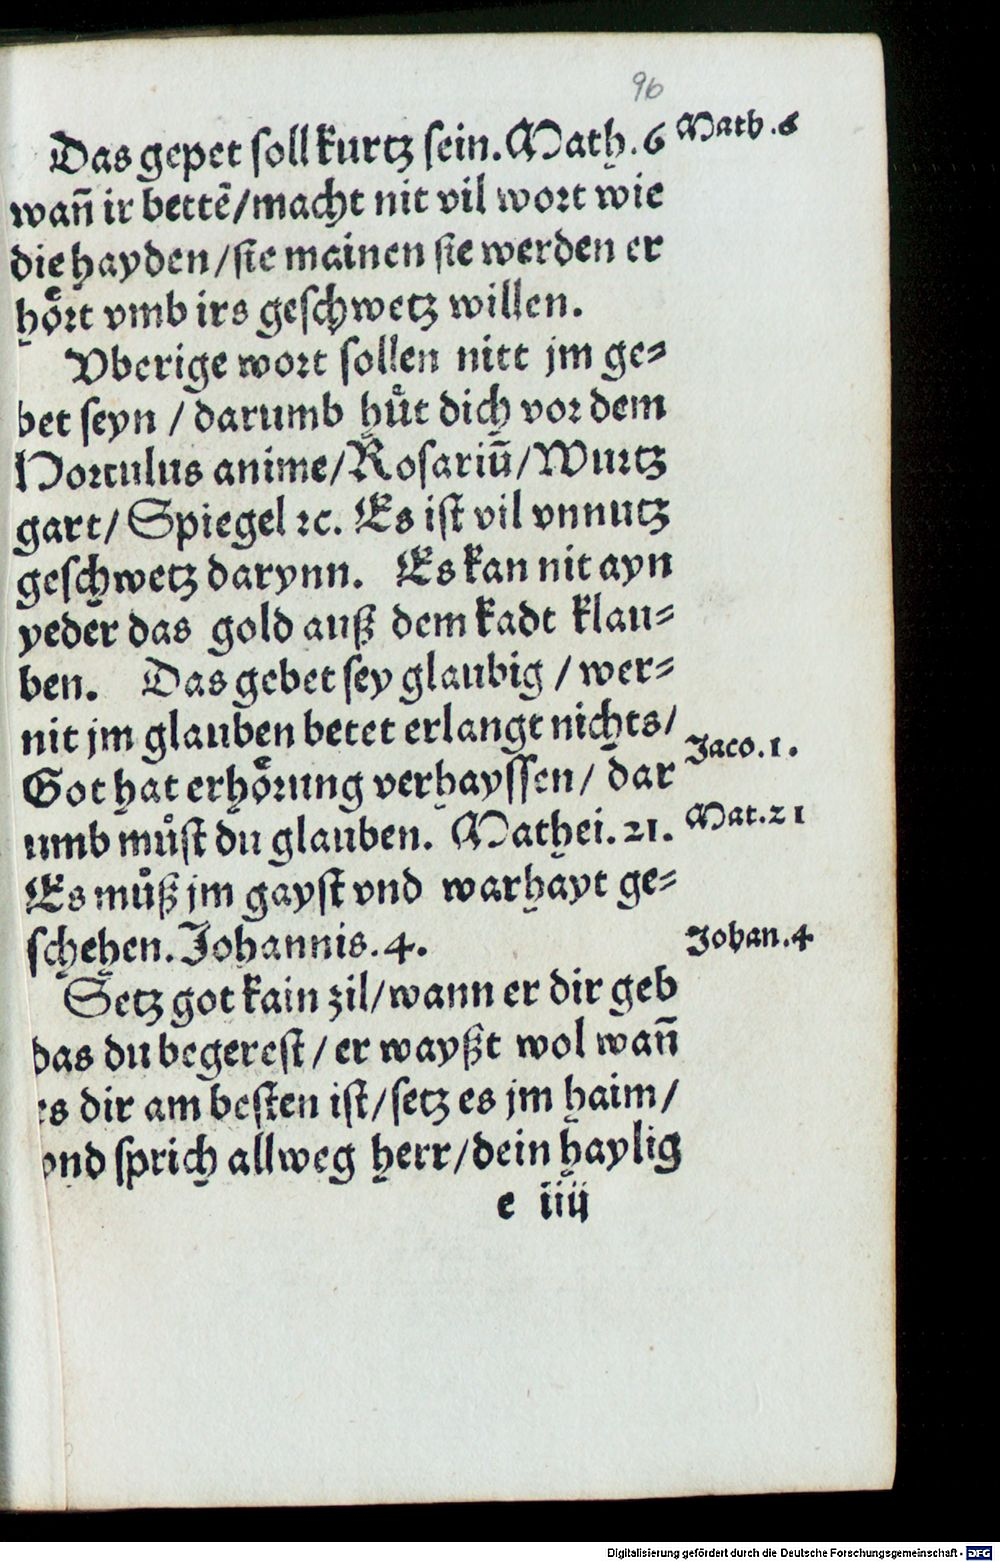 96
Das gepet soll kurtz sein. Math. 6 Math. 6
wañ ir bettẽ/macht nit vil wort wie
die hayden/sie mainen sie werden er
hoͤrt vmb irs geschwetz willen.
Vberige wort sollen nitt jm ge⸗
bet seyn / darumb huͤt dich vor dem
Hortulus anime/Rosariũ/Wurtz
gart/ Spiegel ꝛc. Es ist vil vnnutz
geschwetz darynn. Es kan nit ayn
yeder das gold auß dem kadt klau⸗
ben. Das gebet sey glaubig / wer⸗
nit jm glauben betet erlangt nichts/
Jaco. 1.
Got hat erhoͤrung verhayssen/ dar
umb muͤst du glauben. Mathei. 21. Mat. 21
Es muͤß jm gayst vnd warhayt ge⸗
schehen. Johannis. 4. Johan. 4
Setz got kain zil/wann er dir geb
das du begerest / er wayßt wol wañ
es dir am besten ist/setz es jm haim/
vnd sprich allweg herr/dein haylig
e iiij
Digitalisierung gefördert durch die Deutsche Forschungsgemeinschaft - DFG